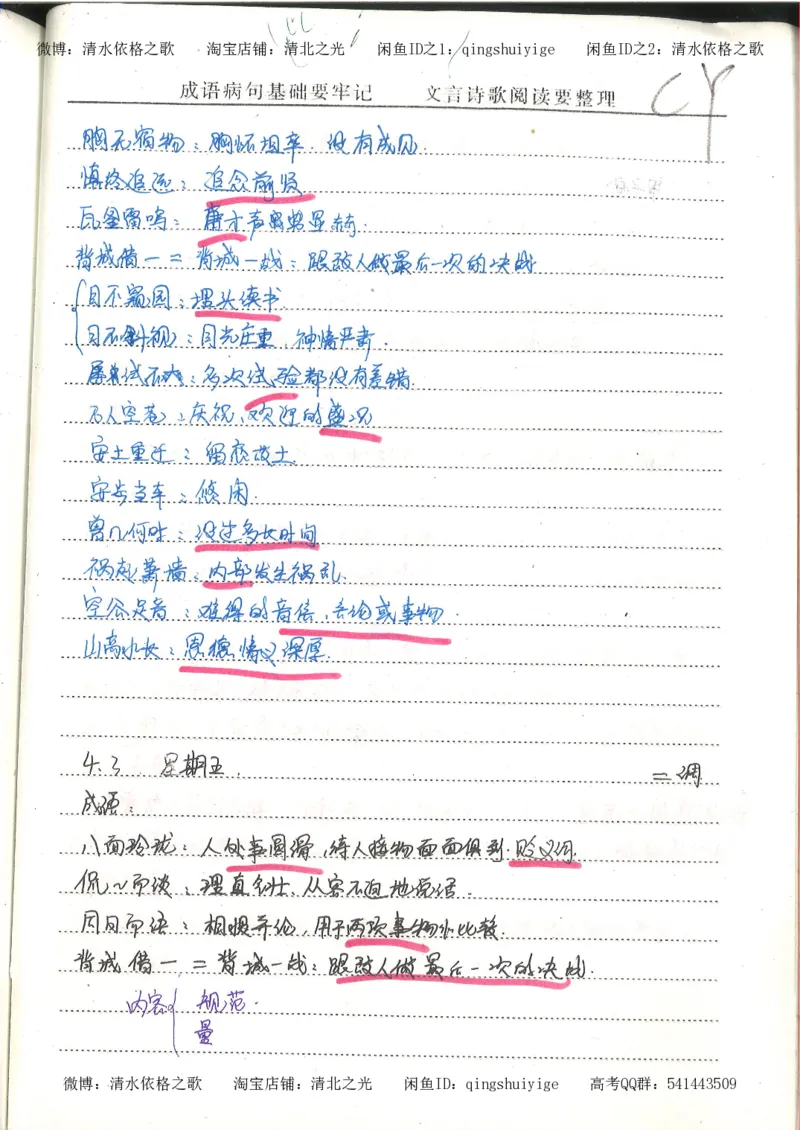 微博：清水依格之歌 淘宝店铺：清北之光 闲鱼ID之1：qingshuiyige 闲鱼ID之2：清水依格之歌
成语病句基础要牢记 文言诗歌阅读要整理
CY
胸无宿物：胸怀坦率．没有成见
慎终追远：追念前贤
瓦釜雷鸣：庸才声势显赫．
背城借一＝背城一战：跟敌人做最后一次的决战
目不窥园：埋头读书
目不斜视：目光庄重，神情严肃．
屡试不爽：多次试验都没有差错．
万人空巷：庆祝、欢迎的盛况
安土重迁：留恋故土．
安步当车：悠闲．
曾几何时：没过多长时间
祸起萧墙：内部发生祸乱．
空谷足音：难得的音信、言论或事物．
山高水长：恩德情义深厚．
4.3 星期五． 二调
成语：
八面玲珑：人处事圆滑，待人接物面面俱到．贬义词．
侃侃而谈：理直气壮、从容不迫地说话．
同日而语：相提并论，用于两项事物比较．
背城借一＝背城一战：跟敌人做最后一次的决战．
内容 规范．
量
微博：清水依格之歌 淘宝店铺：清北之光 闲鱼ID：qingshuiyige 高考QQ群：541443509